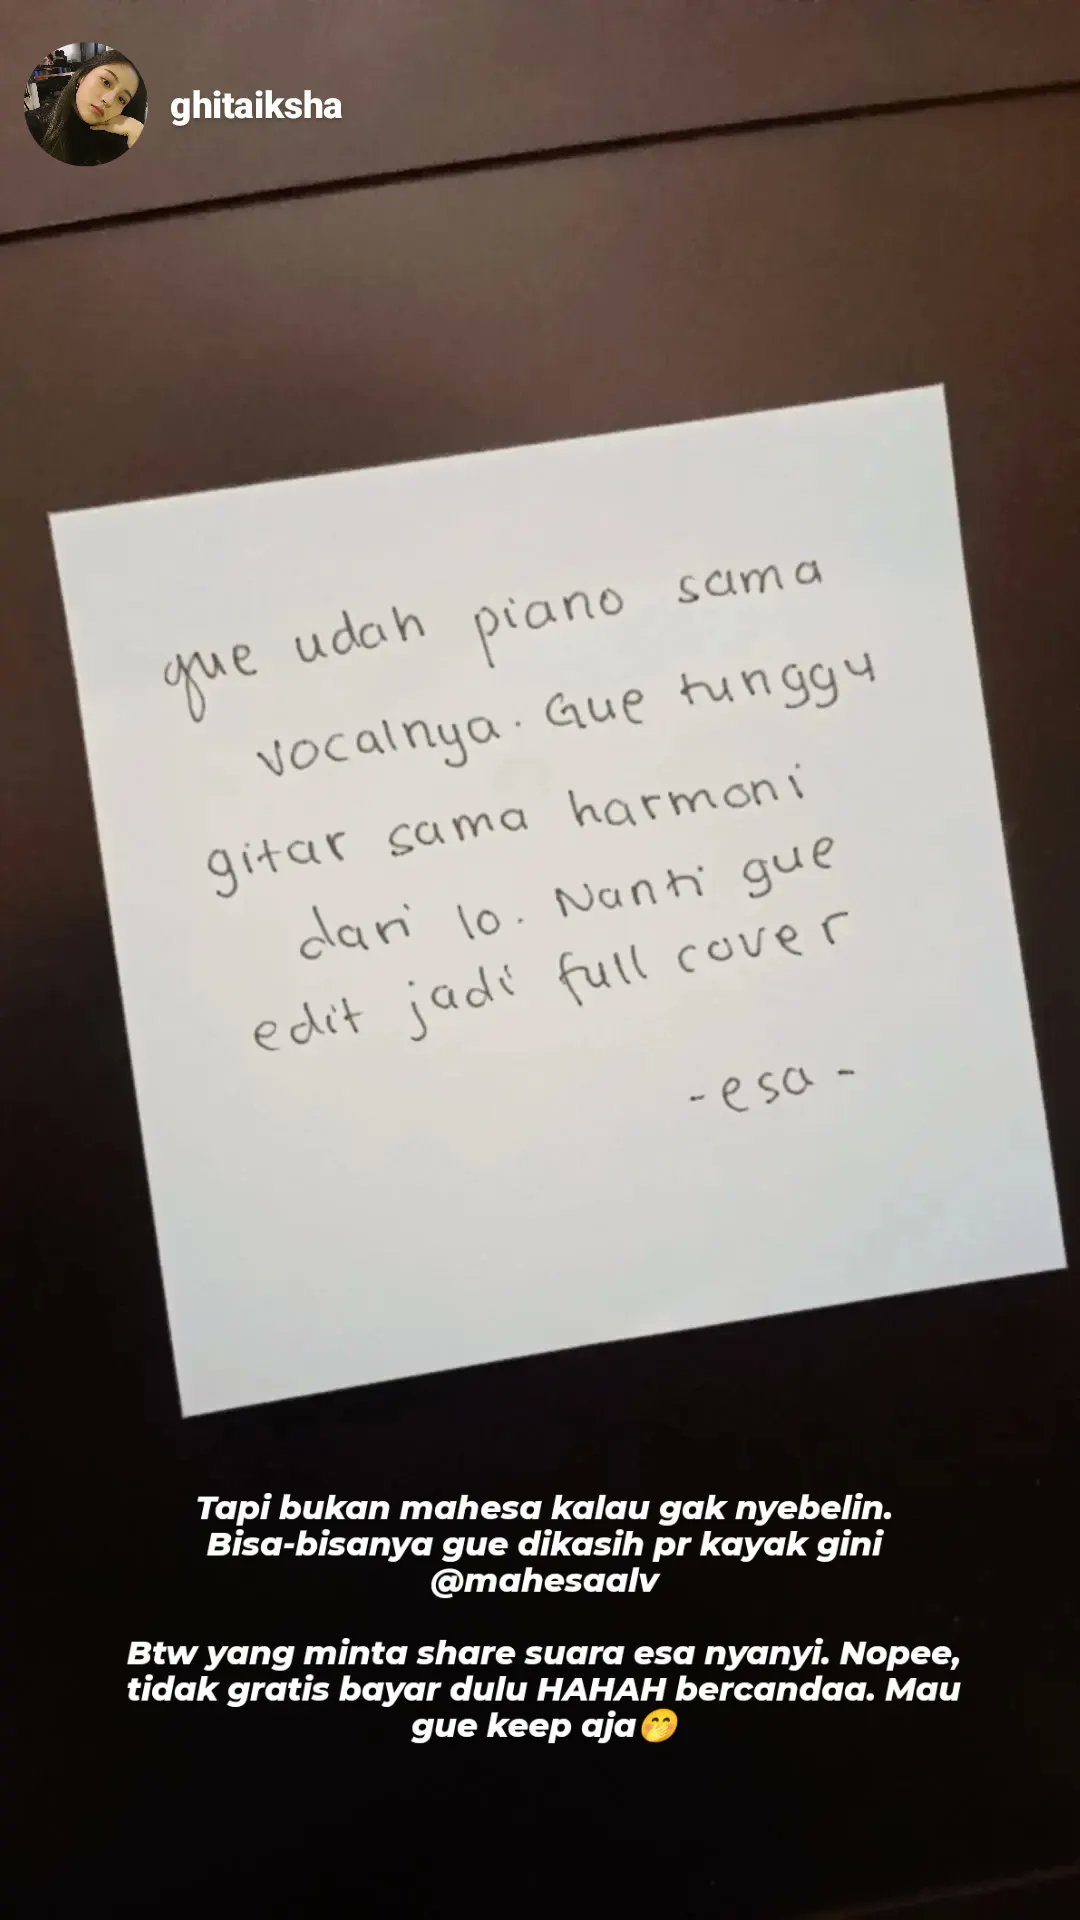 ghitaiksha
gue udah piano sama
vocalnya. Gue tunggu
gitar sama harmoni
dari lo. Nanti gue
edit jadi full cover
- esa -
Tapi bukan mahesa kalau gak nyebelin.
Bisa-bisanya gue dikasih pr kayak gini
@mahesaalv
Btw yang minta share suara esa nyanyi. Nopee,
tidak gratis bayar dulu HAHAH bercandaa. Mau
gue keep aja🤭